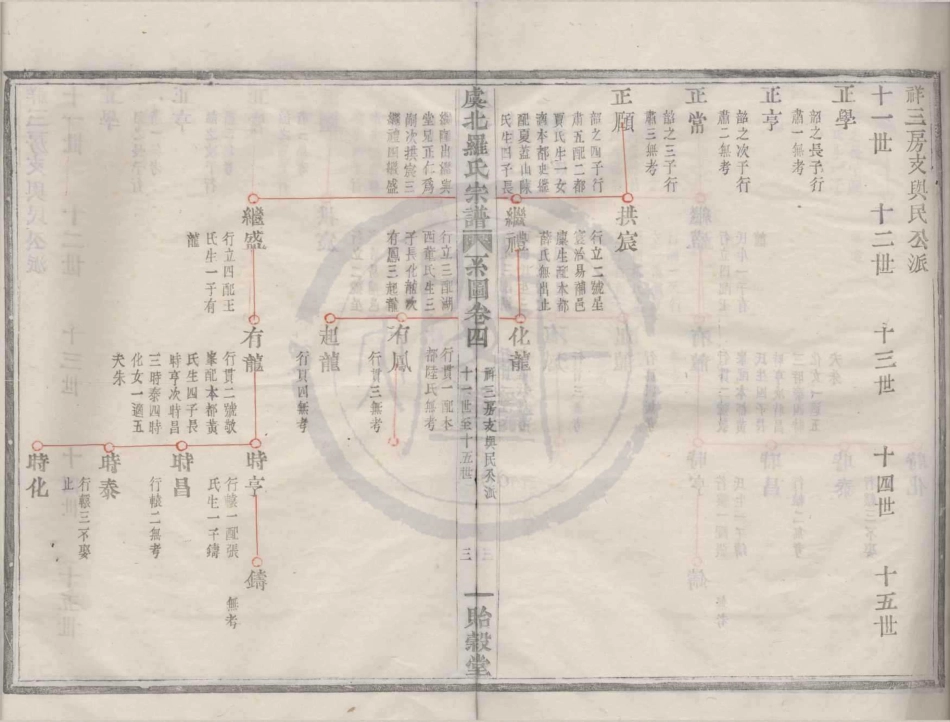 祥三房支與民公派
十一世 十二世 十三世 十四世 十五世
正學
韶之長子行
肅一無考
正亨
韶之次子行
肅二無考
正常
韶之三子行
肅三無考
正願
韶之四子行
肅五配二都
賈氏生一女
配夏蓋山陳
氏生四子長
拱宸
行立二號星
宸治易補邑
廩生配本都
薛氏無出止
化龍
行貫一配本
都陸氏無考
虞北羅氏宗譜
系圖卷四
祥三房支與民公派
十一世至十五世
三
貽穀堂
堂兄正仁爲
嗣次拱宸三
繼禮四繼盛
行立三配湖
西戴氏生三
子長化龍次
有鳳三起龍
有鳳
行貫三無考
起龍
行貫四無考
繼盛
行立四配王
氏生一子有
龍
有龍
行貫二號敬
峯配本都黃
氏生四子長
時亨次時昌
三時泰四時
化女一適五
夫朱
時亨
行轅一配張
氏生一子鑄
時昌
行轅二無考
時泰
行轅三不娶
止
時化
鑄
無考